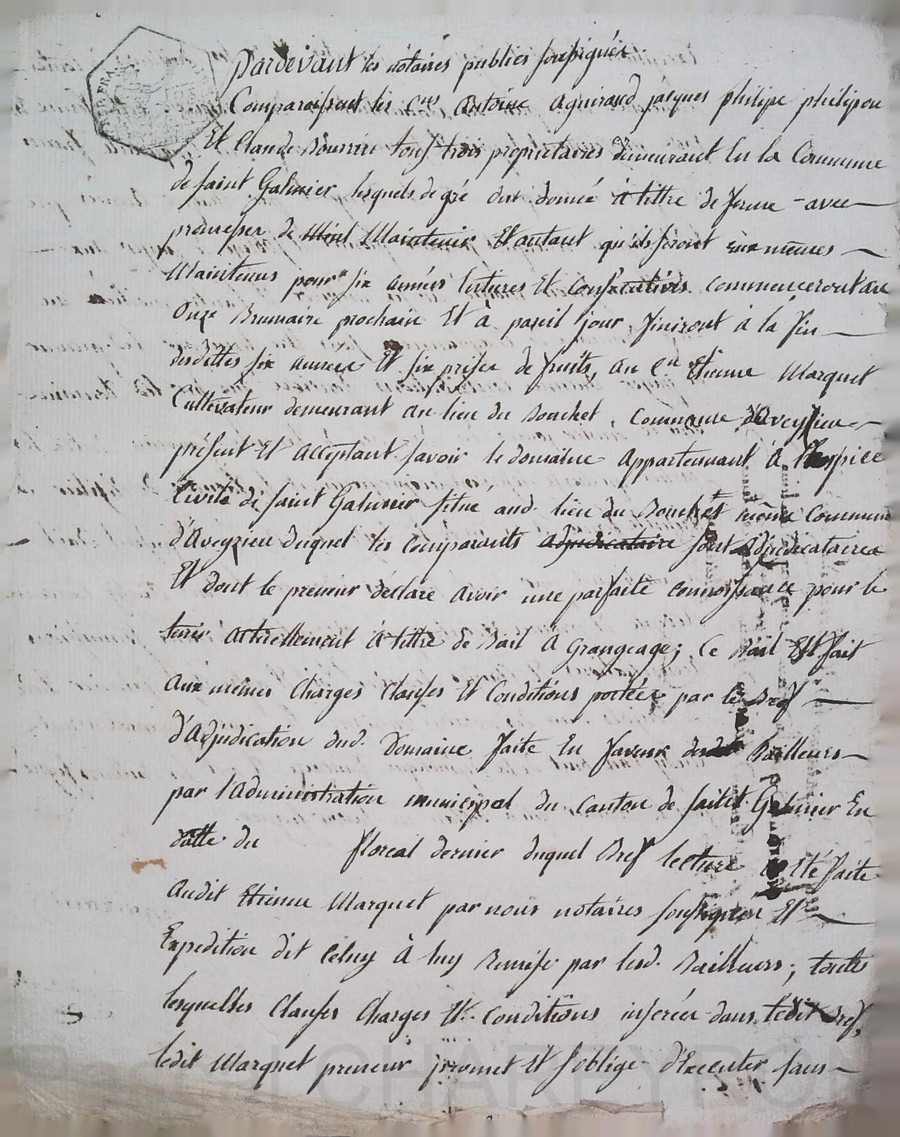 Pardevant les notaires publics soussignés
Comparaissent les Cns Antoine Aguiraud jacques philipe philipon
Et Claude Bourrin tous trois proprietaires demeurant En la Commune
de saint Galmier lesquels de gré ont donné à tittre de ferme avec
promesse de Maintenir Et autant qu'ils seront eux memes
Maintenus pour six années Enteres Et Consecutives commenceront au
Onze Brumaire prochain Et à pareil jour finiront à la fin
desdittes six années Et six prises de fruits, au Cn Etienne Marquet
Cultivateur demeurant au lieu du Bouchet, Commune d'Aveyzieu
présent Et Acceptant savoir le domaine Appartennant à l'hospice
Civile de saint Galmier situé aud. lieu du Bouchet même Commune
d'Aveyzieu duquel les Comparants Adjudicataire sont Adjudicataires
Et dont le preneur déclare avoir une parfaite connoissance pour le
tenir actuellement à tittre de Bail à Grangeage; Ce Bail Est fait
aux mêmes Charges Clauses Et Conditions portées par le Bref
d'Adjudication dud. Domaine faite En faveur desd. Bailleurs
par l'Administration municipal du Canton de saint Galmier En
datte du floréal dernier duquel Bref lecture a Eté faite
audit Etienne Marquet par nous notaires soussignés Et
Expedition dit Celuy à luy Remise par lesd. Bailleurs; toutes
lesquelles Clauses Charges Et Conditions inserées dans ledit Bref,
ledit Marquet preneur promet Et s'oblige d'Executer sans